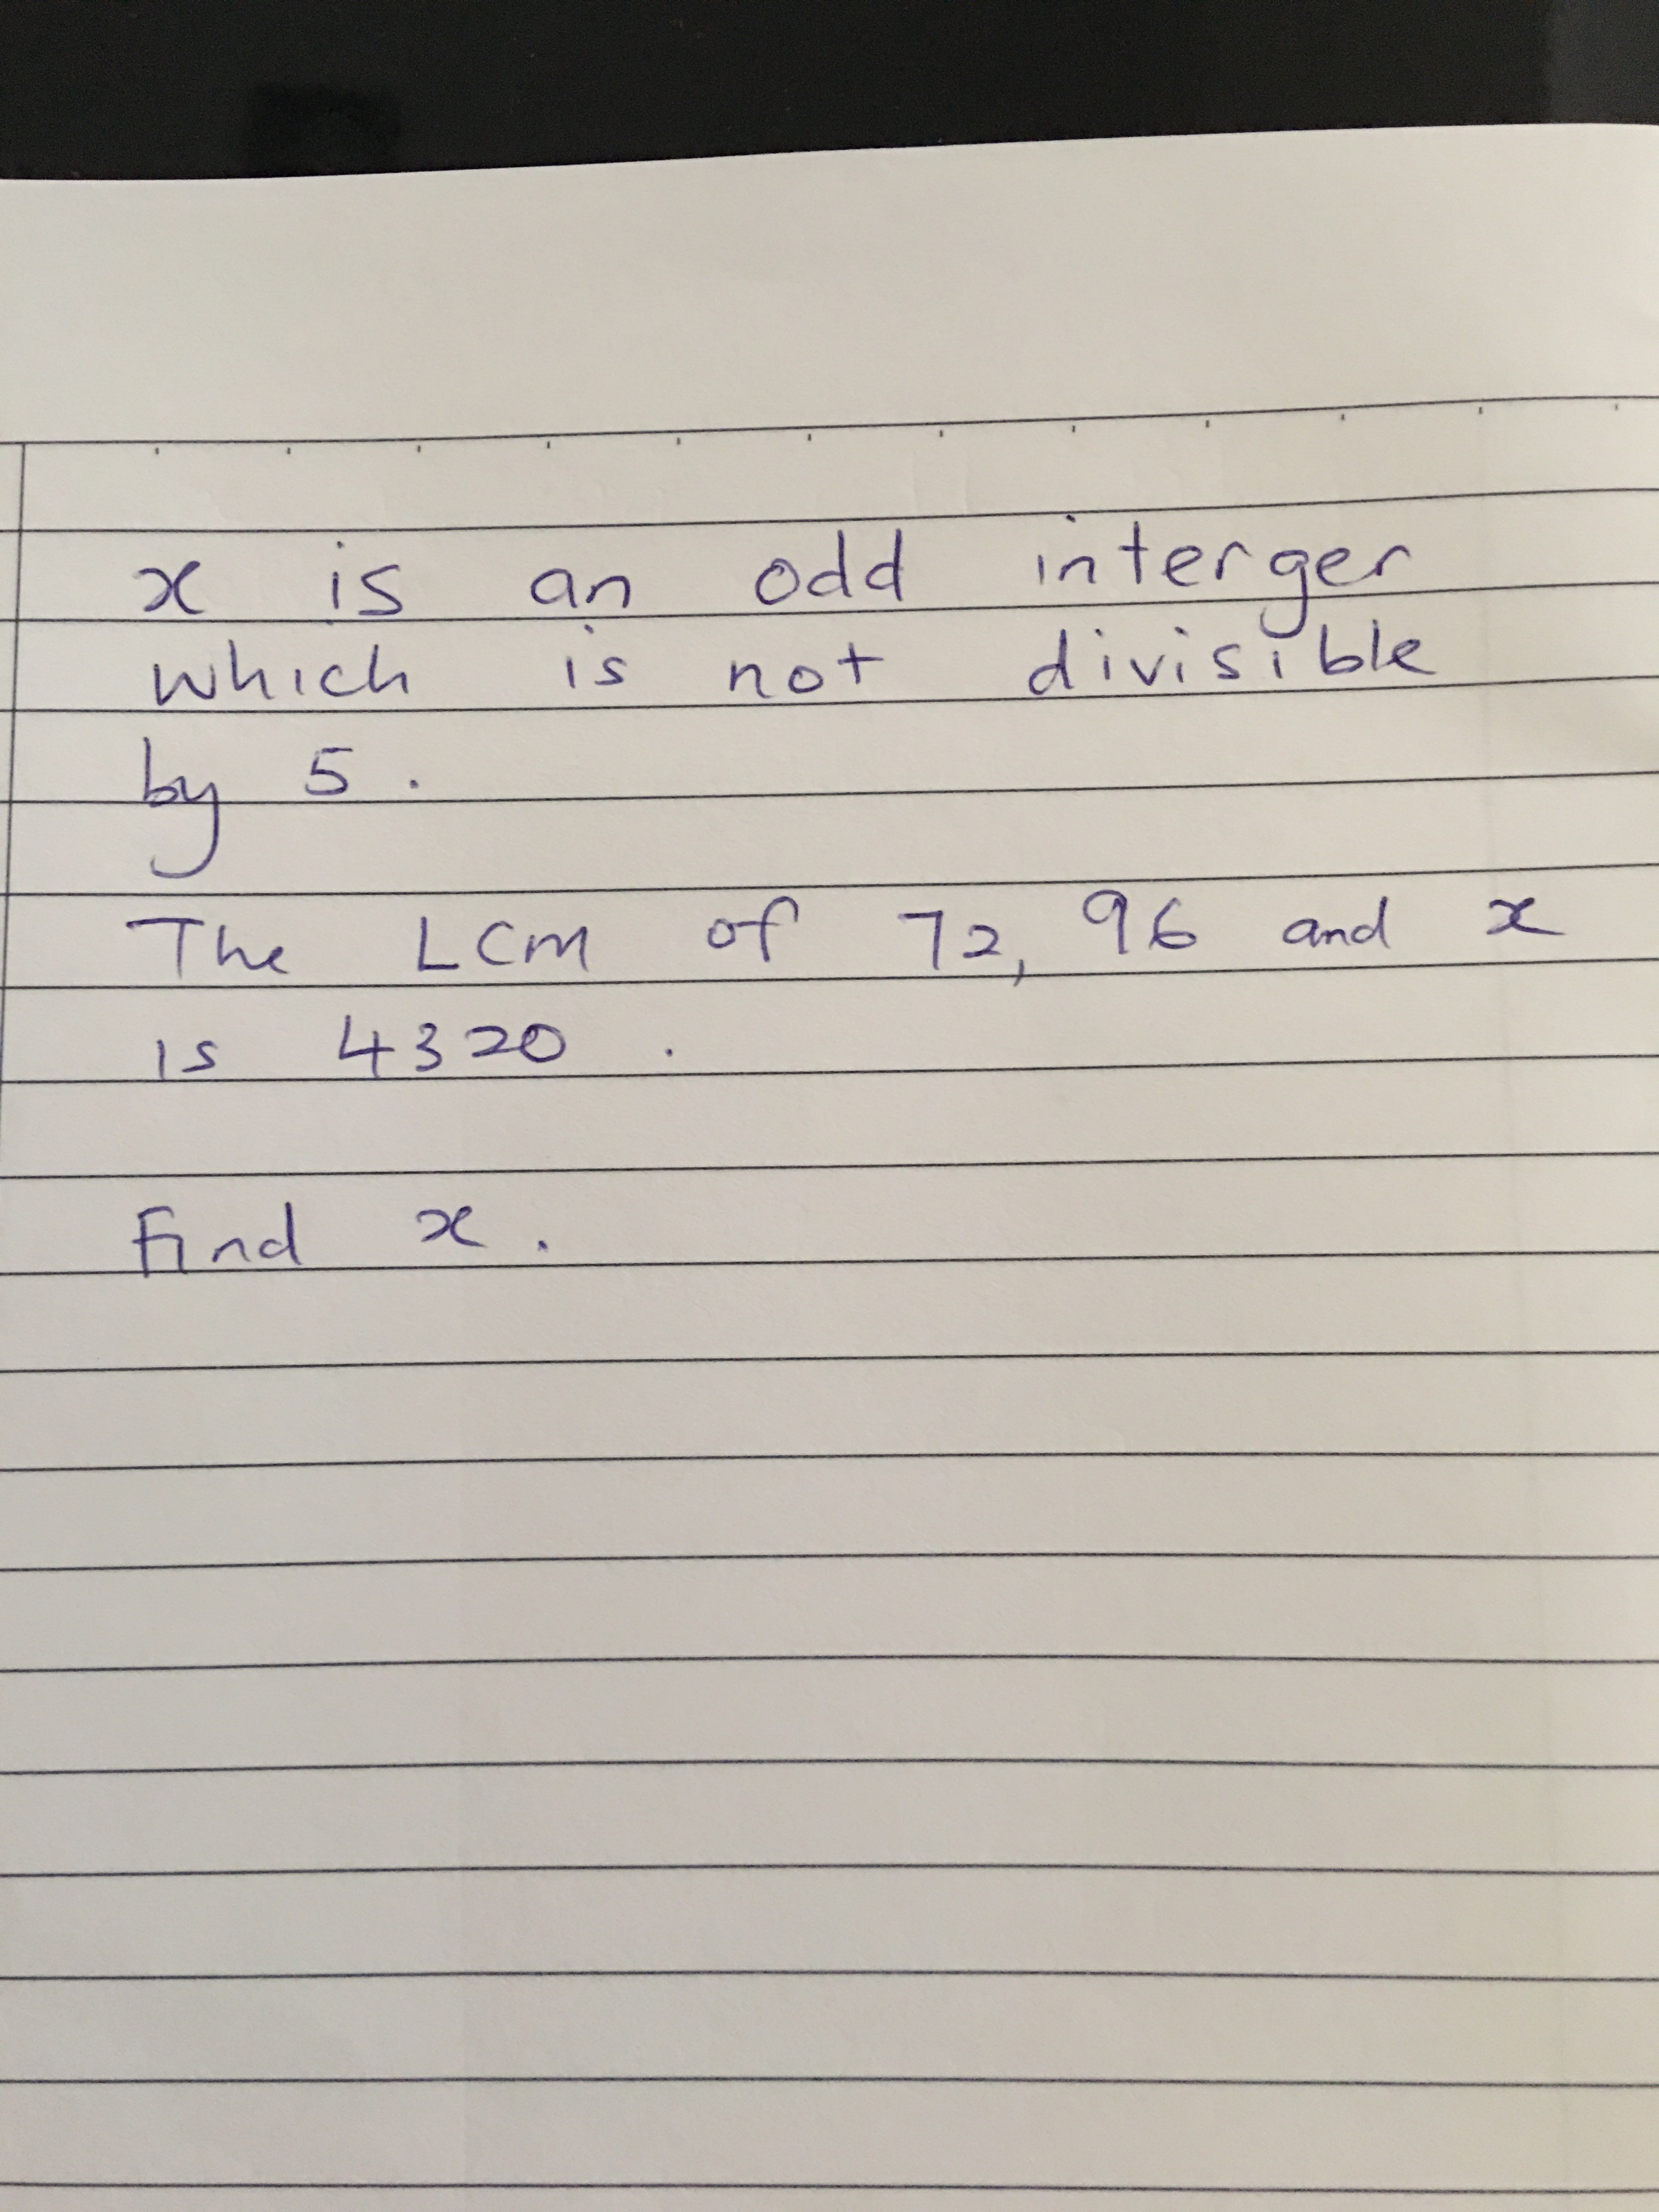 x is an odd interger
which is not divisible
by 5.
The LCM of 72, 96 and x
is 4320.
Find x.